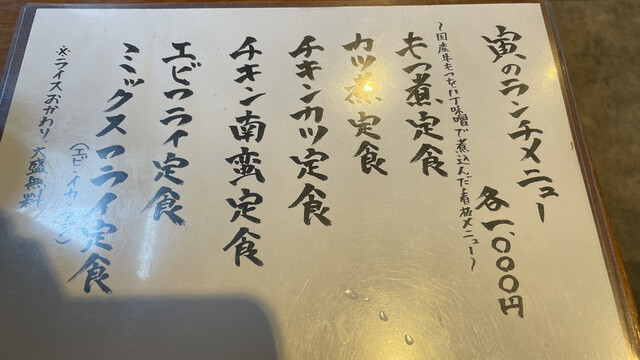 寅のランチメニュー
各一、〇〇〇円
〜国産牛もつを八丁味噌で煮込んだ看板メニュー〜
もつ煮定食
カツ煮定食
チキンカツ定食
チキン南蛮定食
エビフライ定食
ミックスフライ定食
(エビ・イカ・
※ライスおかわり・大盛無料